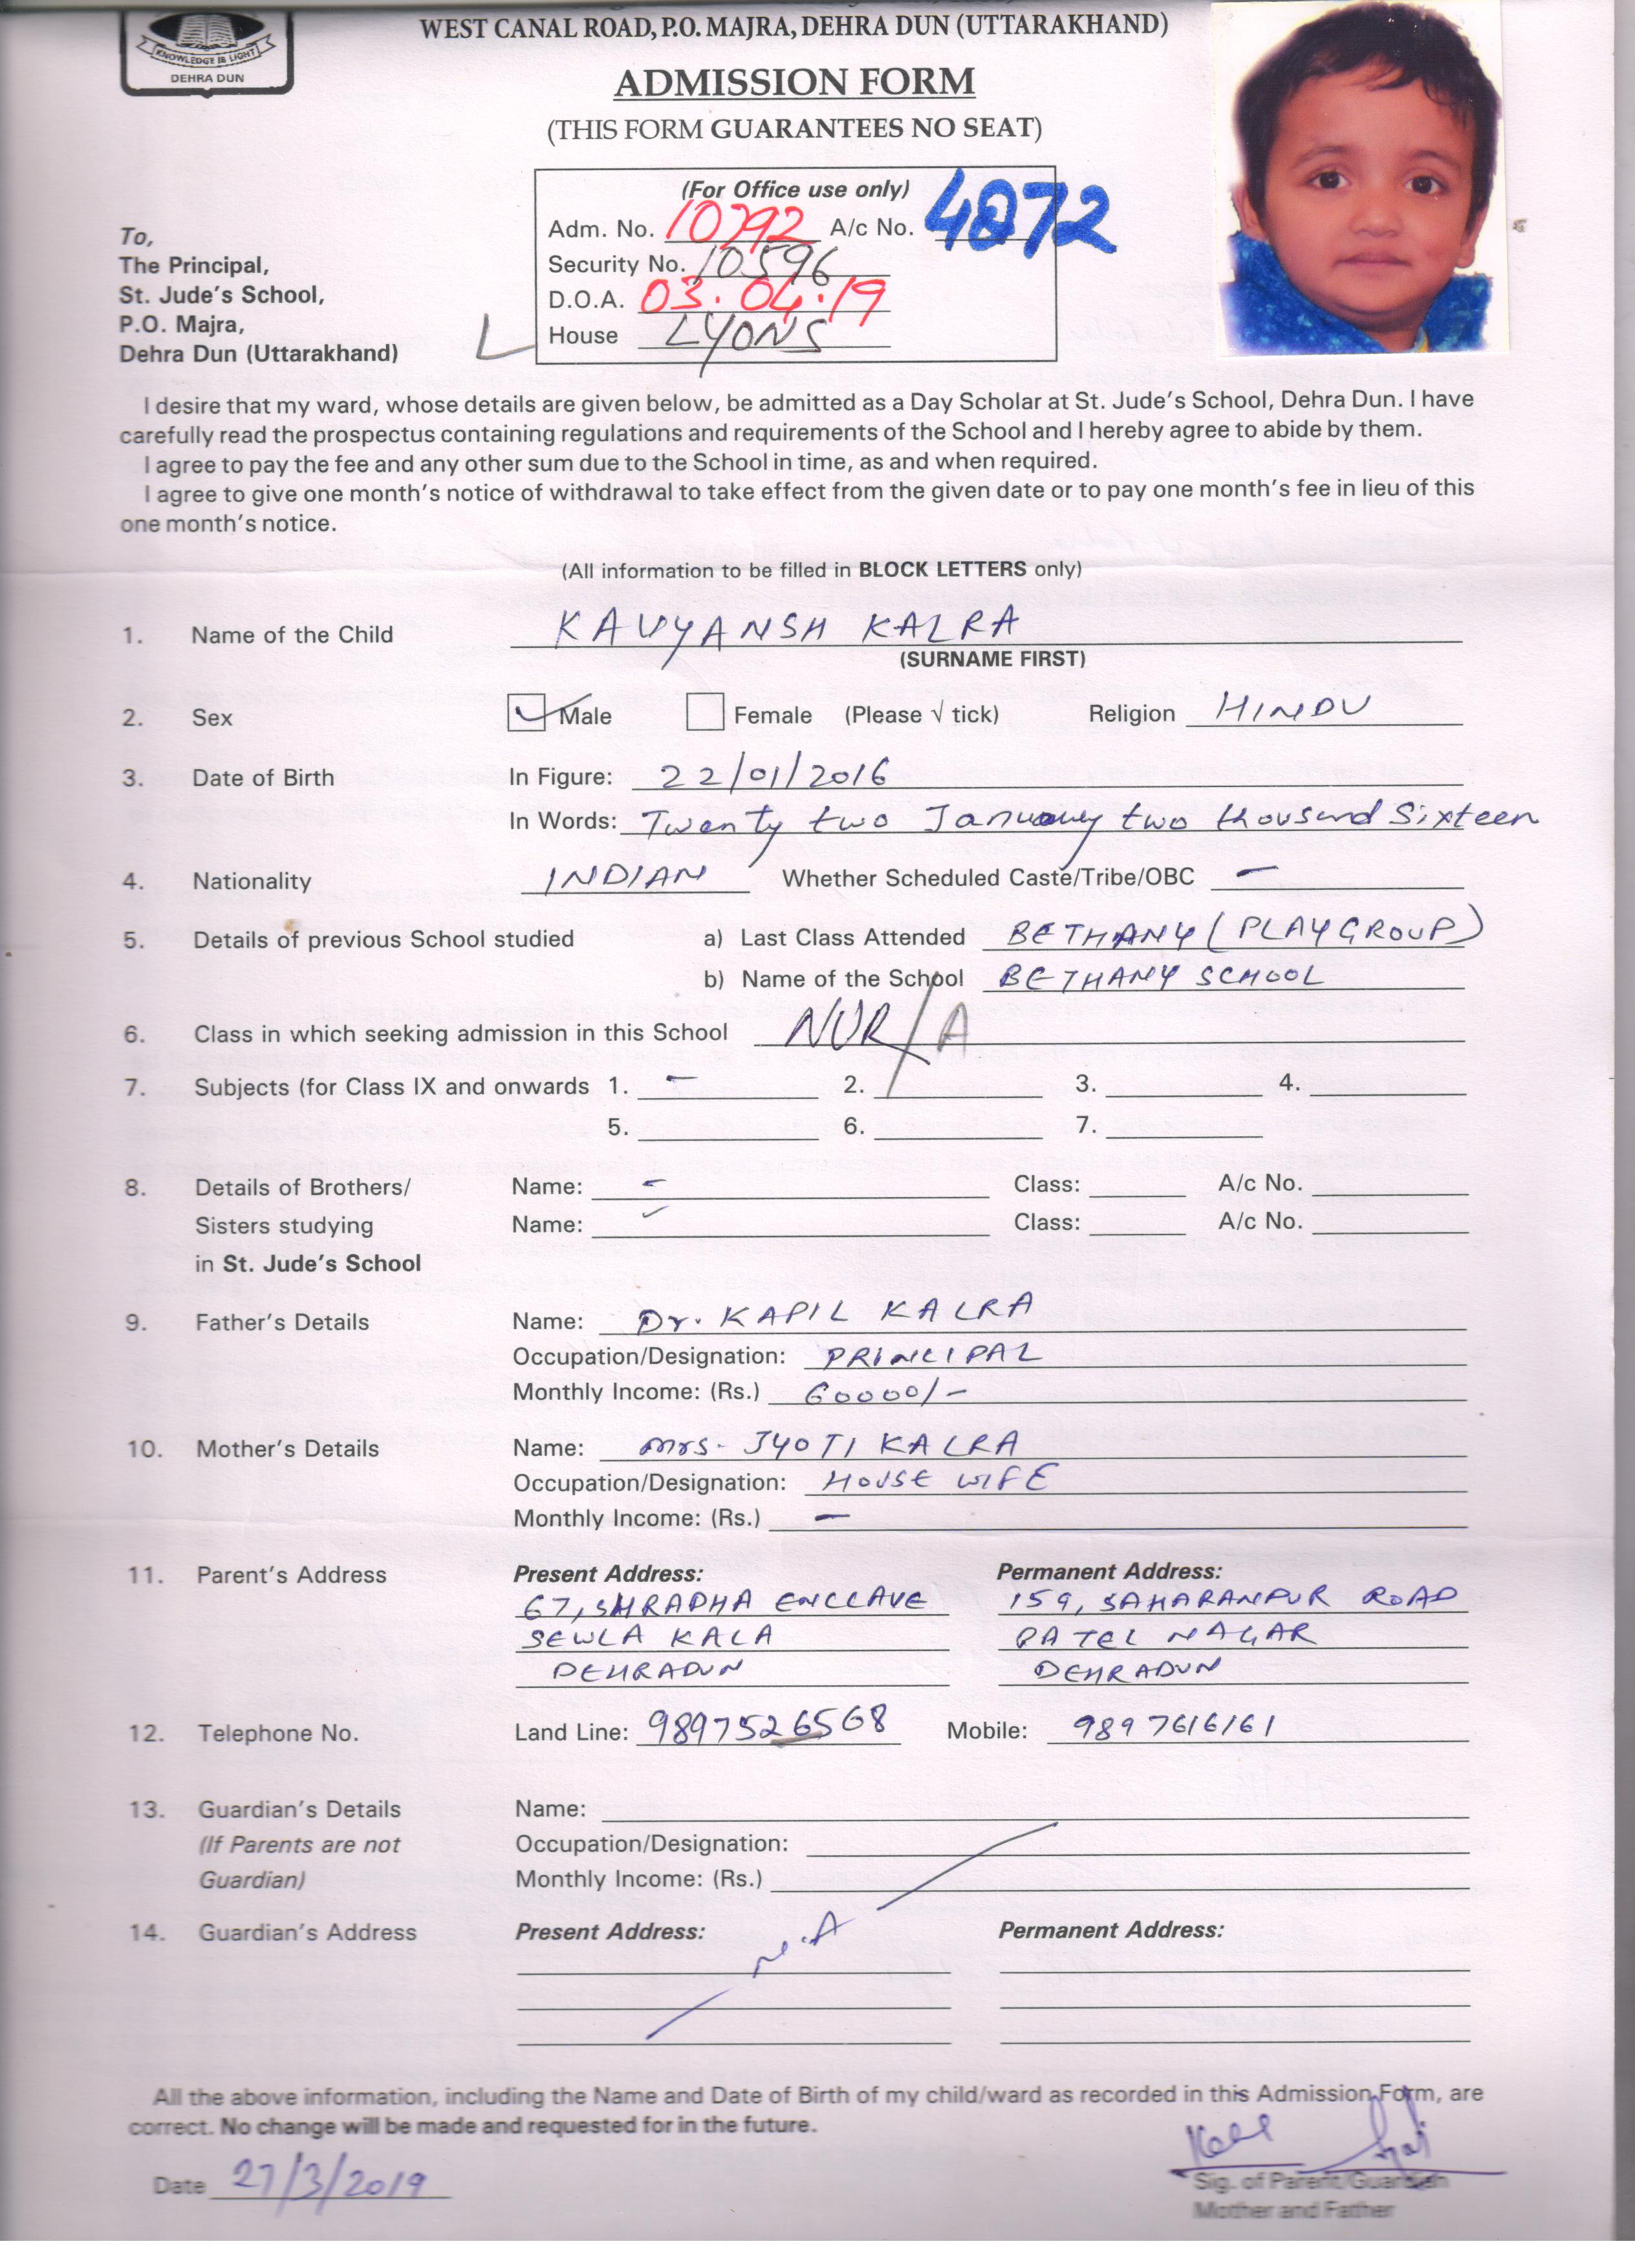 KNOWLEDGE IS LIGHT
DEHRA DUN
WEST CANAL ROAD, P.O. MAJRA, DEHRA DUN (UTTARAKHAND)
ADMISSION FORM
(THIS FORM GUARANTEES NO SEAT)
(For Office use only)
Adm. No. 10792 A/c No. 4872
Security No. 10596
D.O.A. 03.04.19
House LYONS
To,
The Principal,
St. Jude's School,
P.O. Majra,
Dehra Dun (Uttarakhand)
I desire that my ward, whose details are given below, be admitted as a Day Scholar at St. Jude's School, Dehra Dun. I have
carefully read the prospectus containing regulations and requirements of the School and I hereby agree to abide by them.
I agree to pay the fee and any other sum due to the School in time, as and when required.
I agree to give one month's notice of withdrawal to take effect from the given date or to pay one month's fee in lieu of this
one month's notice.
(All information to be filled in BLOCK LETTERS only)
1. Name of the Child KAVYANSH KALRA
(SURNAME FIRST)
2. Sex Male Female (Please √ tick) Religion HINDU
3. Date of Birth In Figure: 22/01/2016
In Words: Twenty two January two thousand Sixteen
4. Nationality INDIAN Whether Scheduled Caste/Tribe/OBC -
5. Details of previous School studied a) Last Class Attended BETHANY (PLAYGROUP)
b) Name of the School BETHANY SCHOOL
6. Class in which seeking admission in this School NUR/A
7. Subjects (for Class IX and onwards 1. - 2. 3. 4.
5. 6. 7.
8. Details of Brothers/ Name: - Class: A/c No.
Sisters studying Name: - Class: A/c No.
in St. Jude's School
9. Father's Details Name: Dr. KAPIL KALRA
Occupation/Designation: PRINCIPAL
Monthly Income: (Rs.) 60000/-
10. Mother's Details Name: Mrs. JYOTI KALRA
Occupation/Designation: HOUSE WIFE
Monthly Income: (Rs.) -
11. Parent's Address Present Address: Permanent Address:
67, SHRADHA ENCLAVE 159, SAHARANPUR ROAD
SEWLA KALA PATEL NAGAR
DEHRADUN DEHRADUN
12. Telephone No. Land Line: 9897526568 Mobile: 9897616161
13. Guardian's Details Name:
(If Parents are not Occupation/Designation:
Guardian) Monthly Income: (Rs.)
14. Guardian's Address Present Address: Permanent Address:
N.A
All the above information, including the Name and Date of Birth of my child/ward as recorded in this Admission Form, are
correct. No change will be made and requested for in the future.
Date 27/3/2019
Sig. of Parent/Guardian
Mother and Father